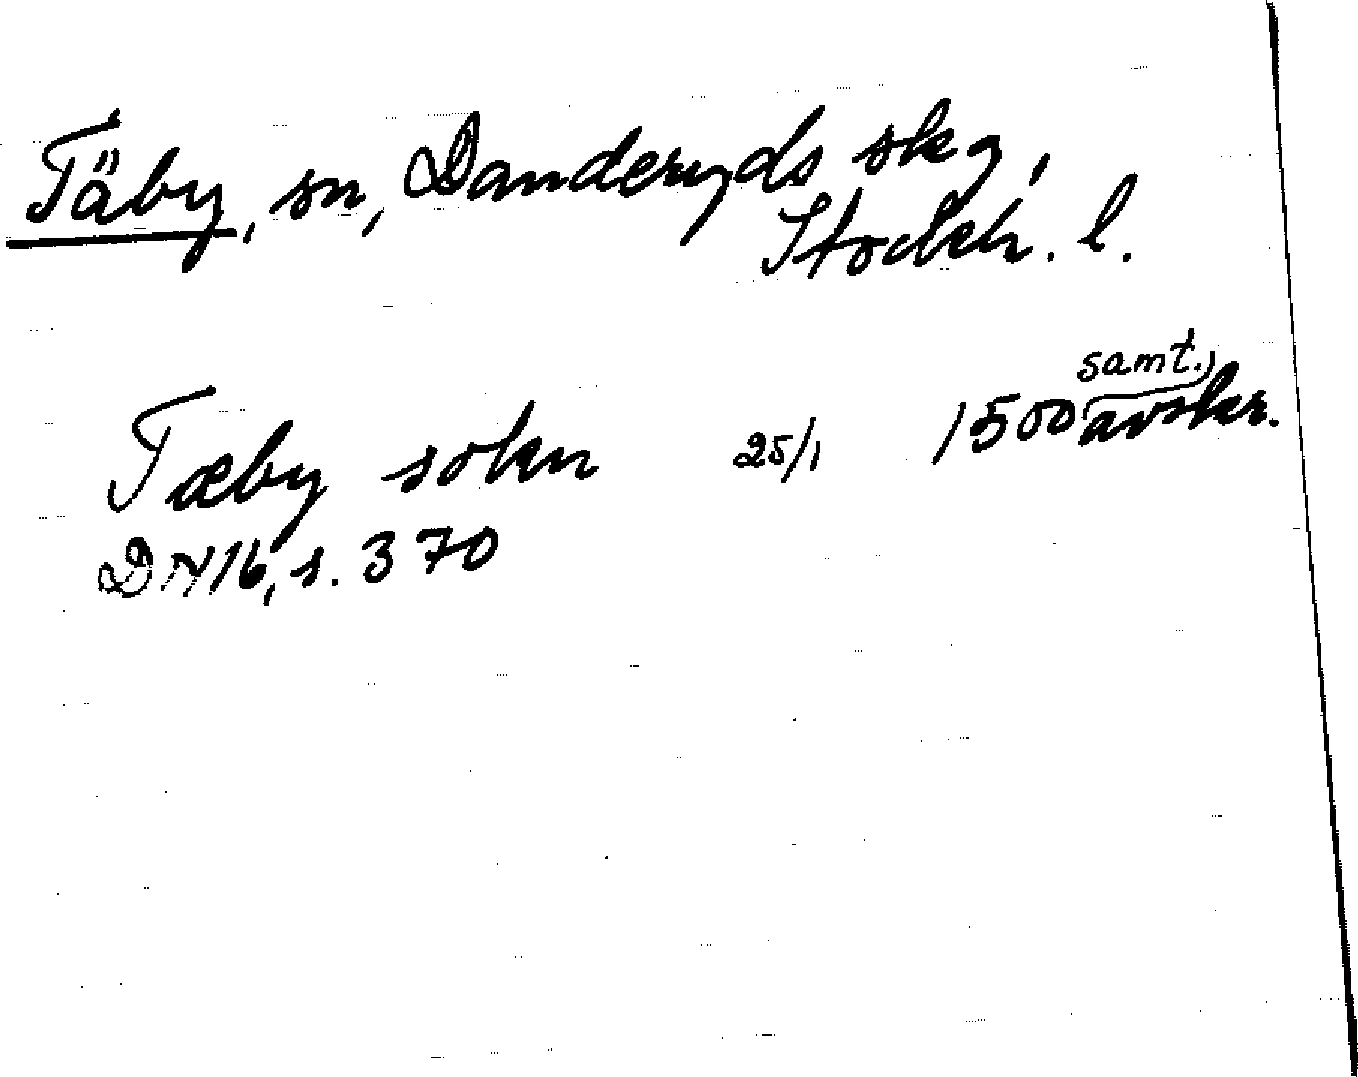 Täby, sn, Danderyds skg,
Stockh. l.
Tæby sokn 25/1 1500 samt. avskr.
DN 16, s. 370